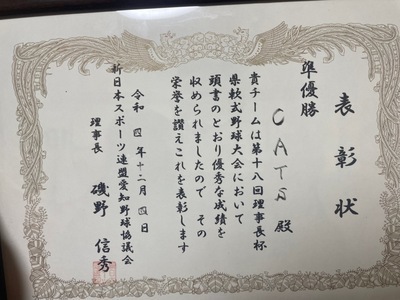 表彰状
準優勝
CATS 殿
貴チームは第十八回理事長杯
県軟式野球大会において
頭書のとおり優秀な成績を
収められましたので その
栄誉を讃えこれを表彰します
令和 四年十二月 四日
新日本スポーツ連盟愛知野球協議会
理事長 磯野 信秀